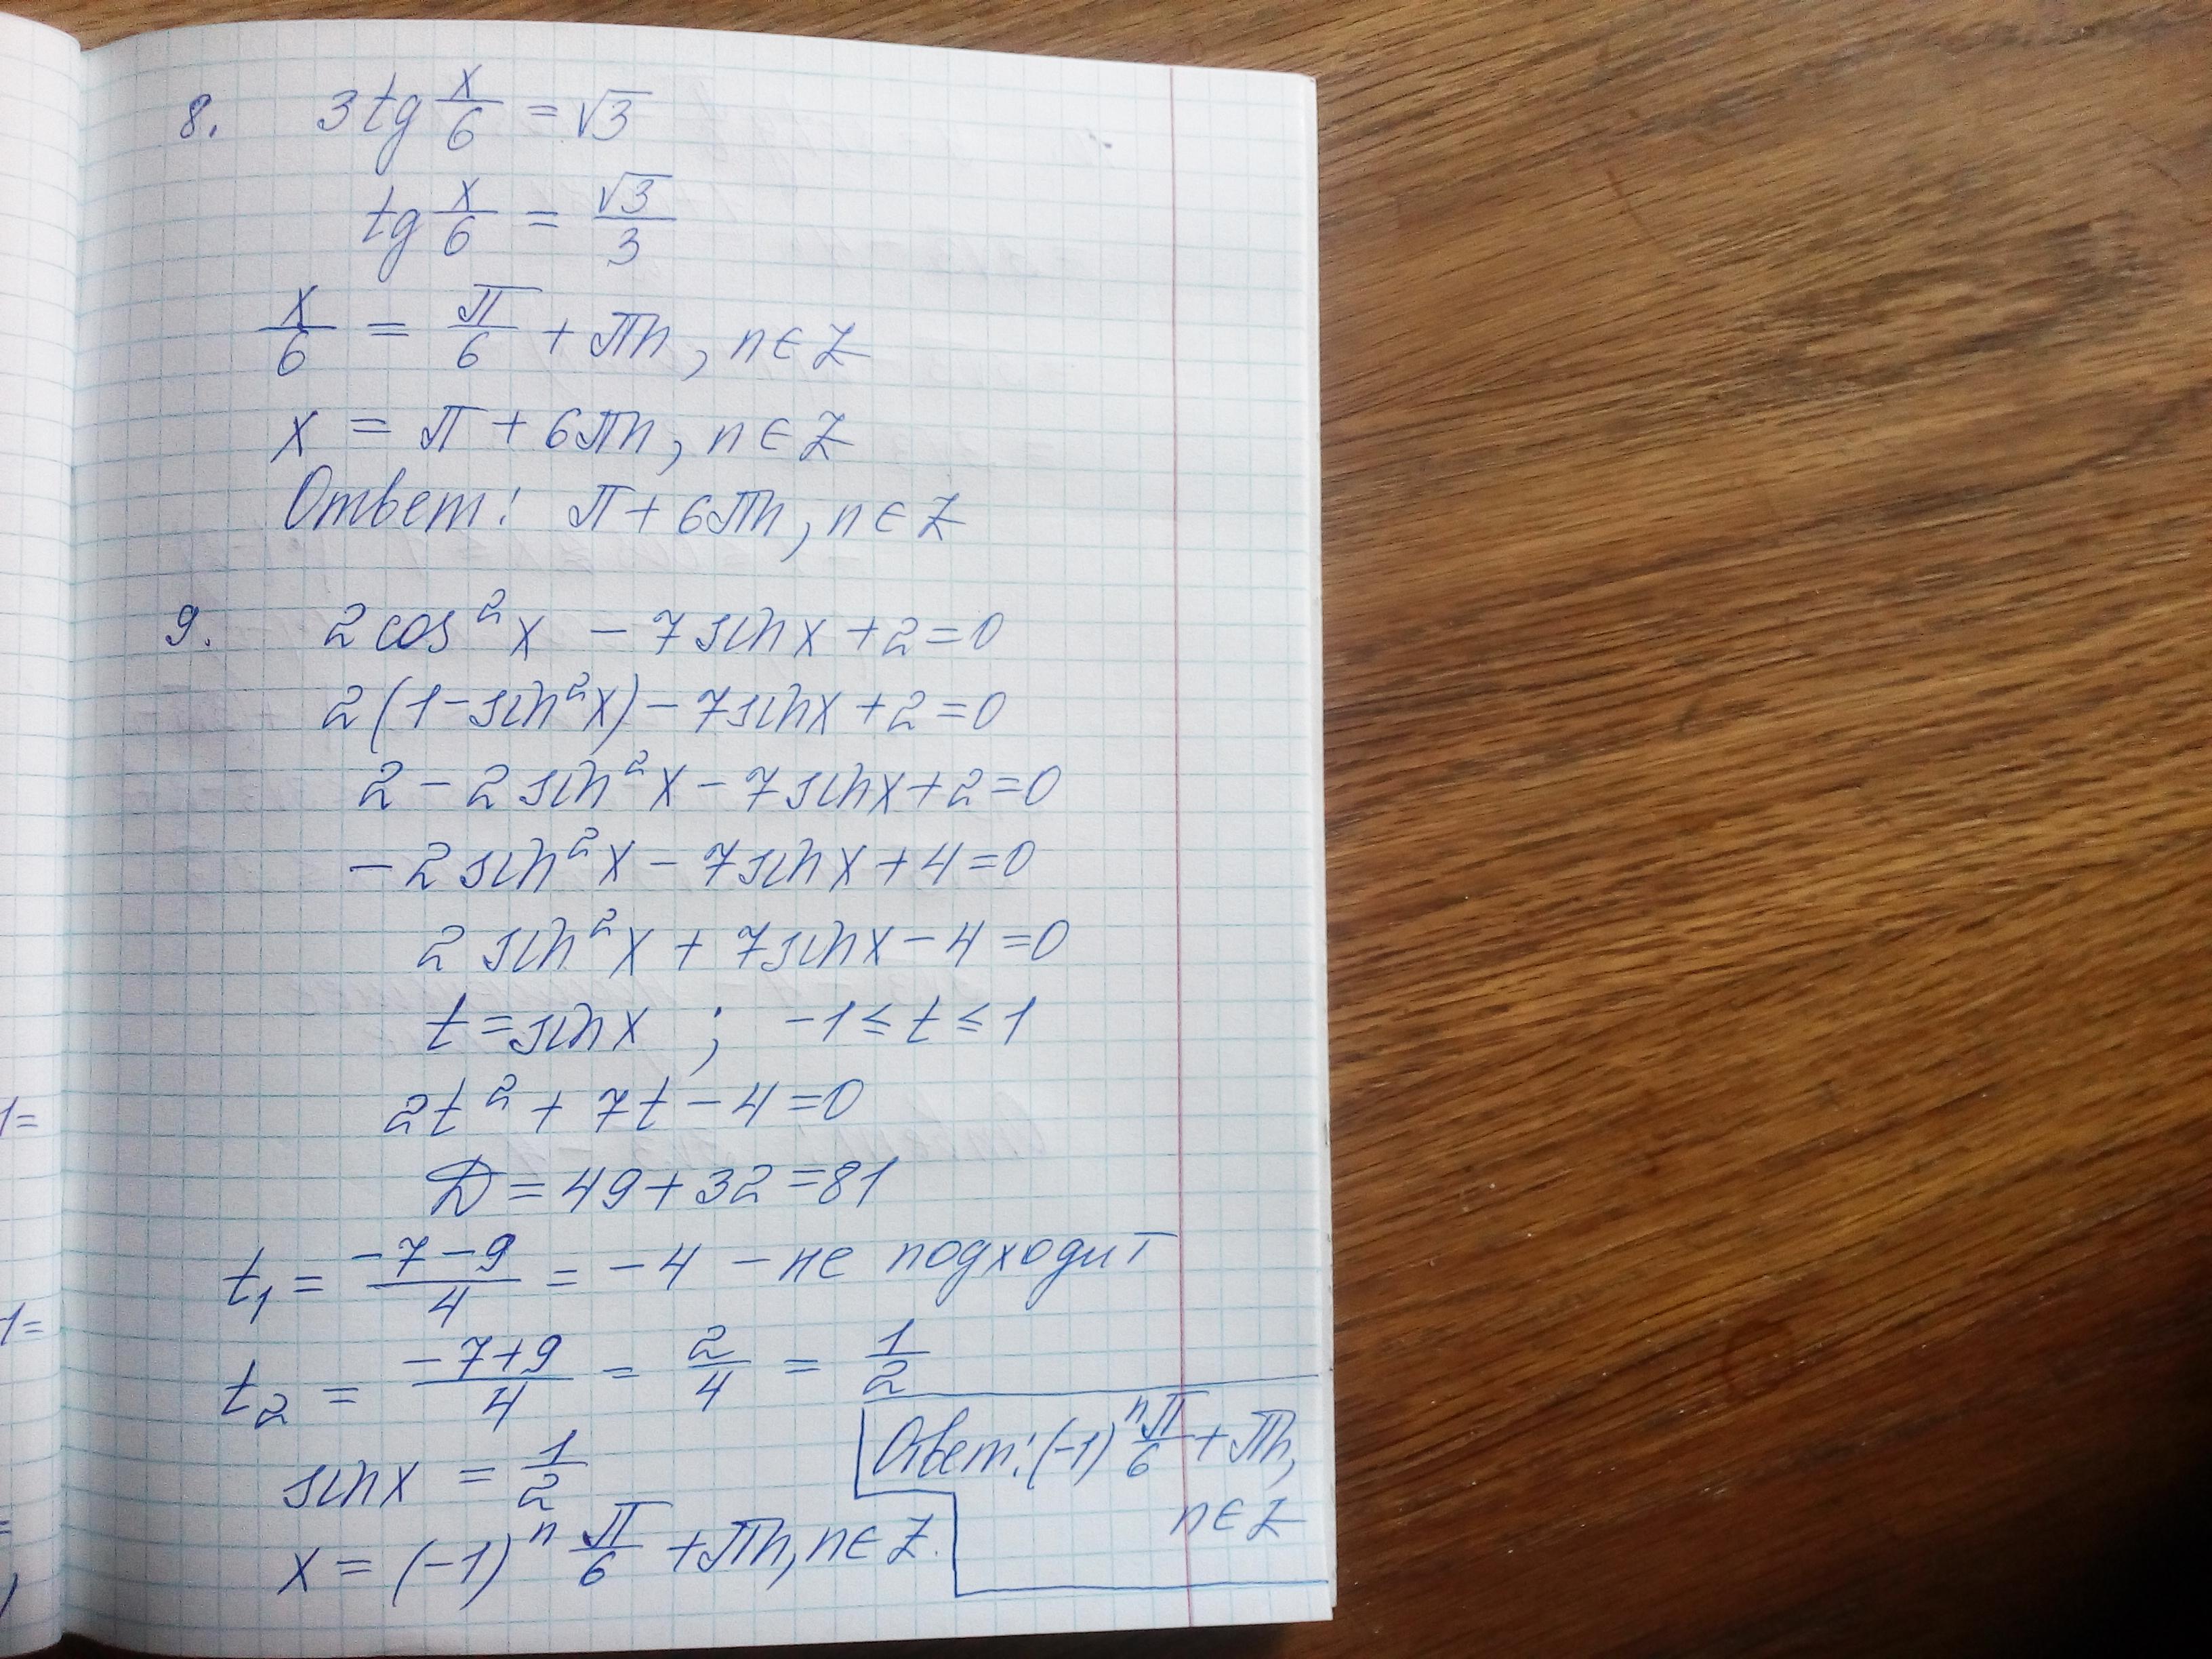 8. 3tg x/6 = √3
tg x/6 = √3/3
x/6 = π/6 + πn, n∈Z
x = π + 6πn, n∈Z
Ответ: π + 6πn, n∈Z
9. 2cos²x - 7sinx + 2 = 0
2(1-sin²x) - 7sinx + 2 = 0
2 - 2sin²x - 7sinx + 2 = 0
-2sin²x - 7sinx + 4 = 0
2sin²x + 7sinx - 4 = 0
t = sinx ; -1 ≤ t ≤ 1
2t² + 7t - 4 = 0
D = 49 + 32 = 81
t₁ = (-7-9)/4 = -4 - не подходит
t₂ = (-7+9)/4 = 2/4 = 1/2
sinx = 1/2
x = (-1)ⁿ π/6 + πn, n∈Z.
Ответ: (-1)ⁿ π/6 + πn,
n∈Z
1=
1=
=